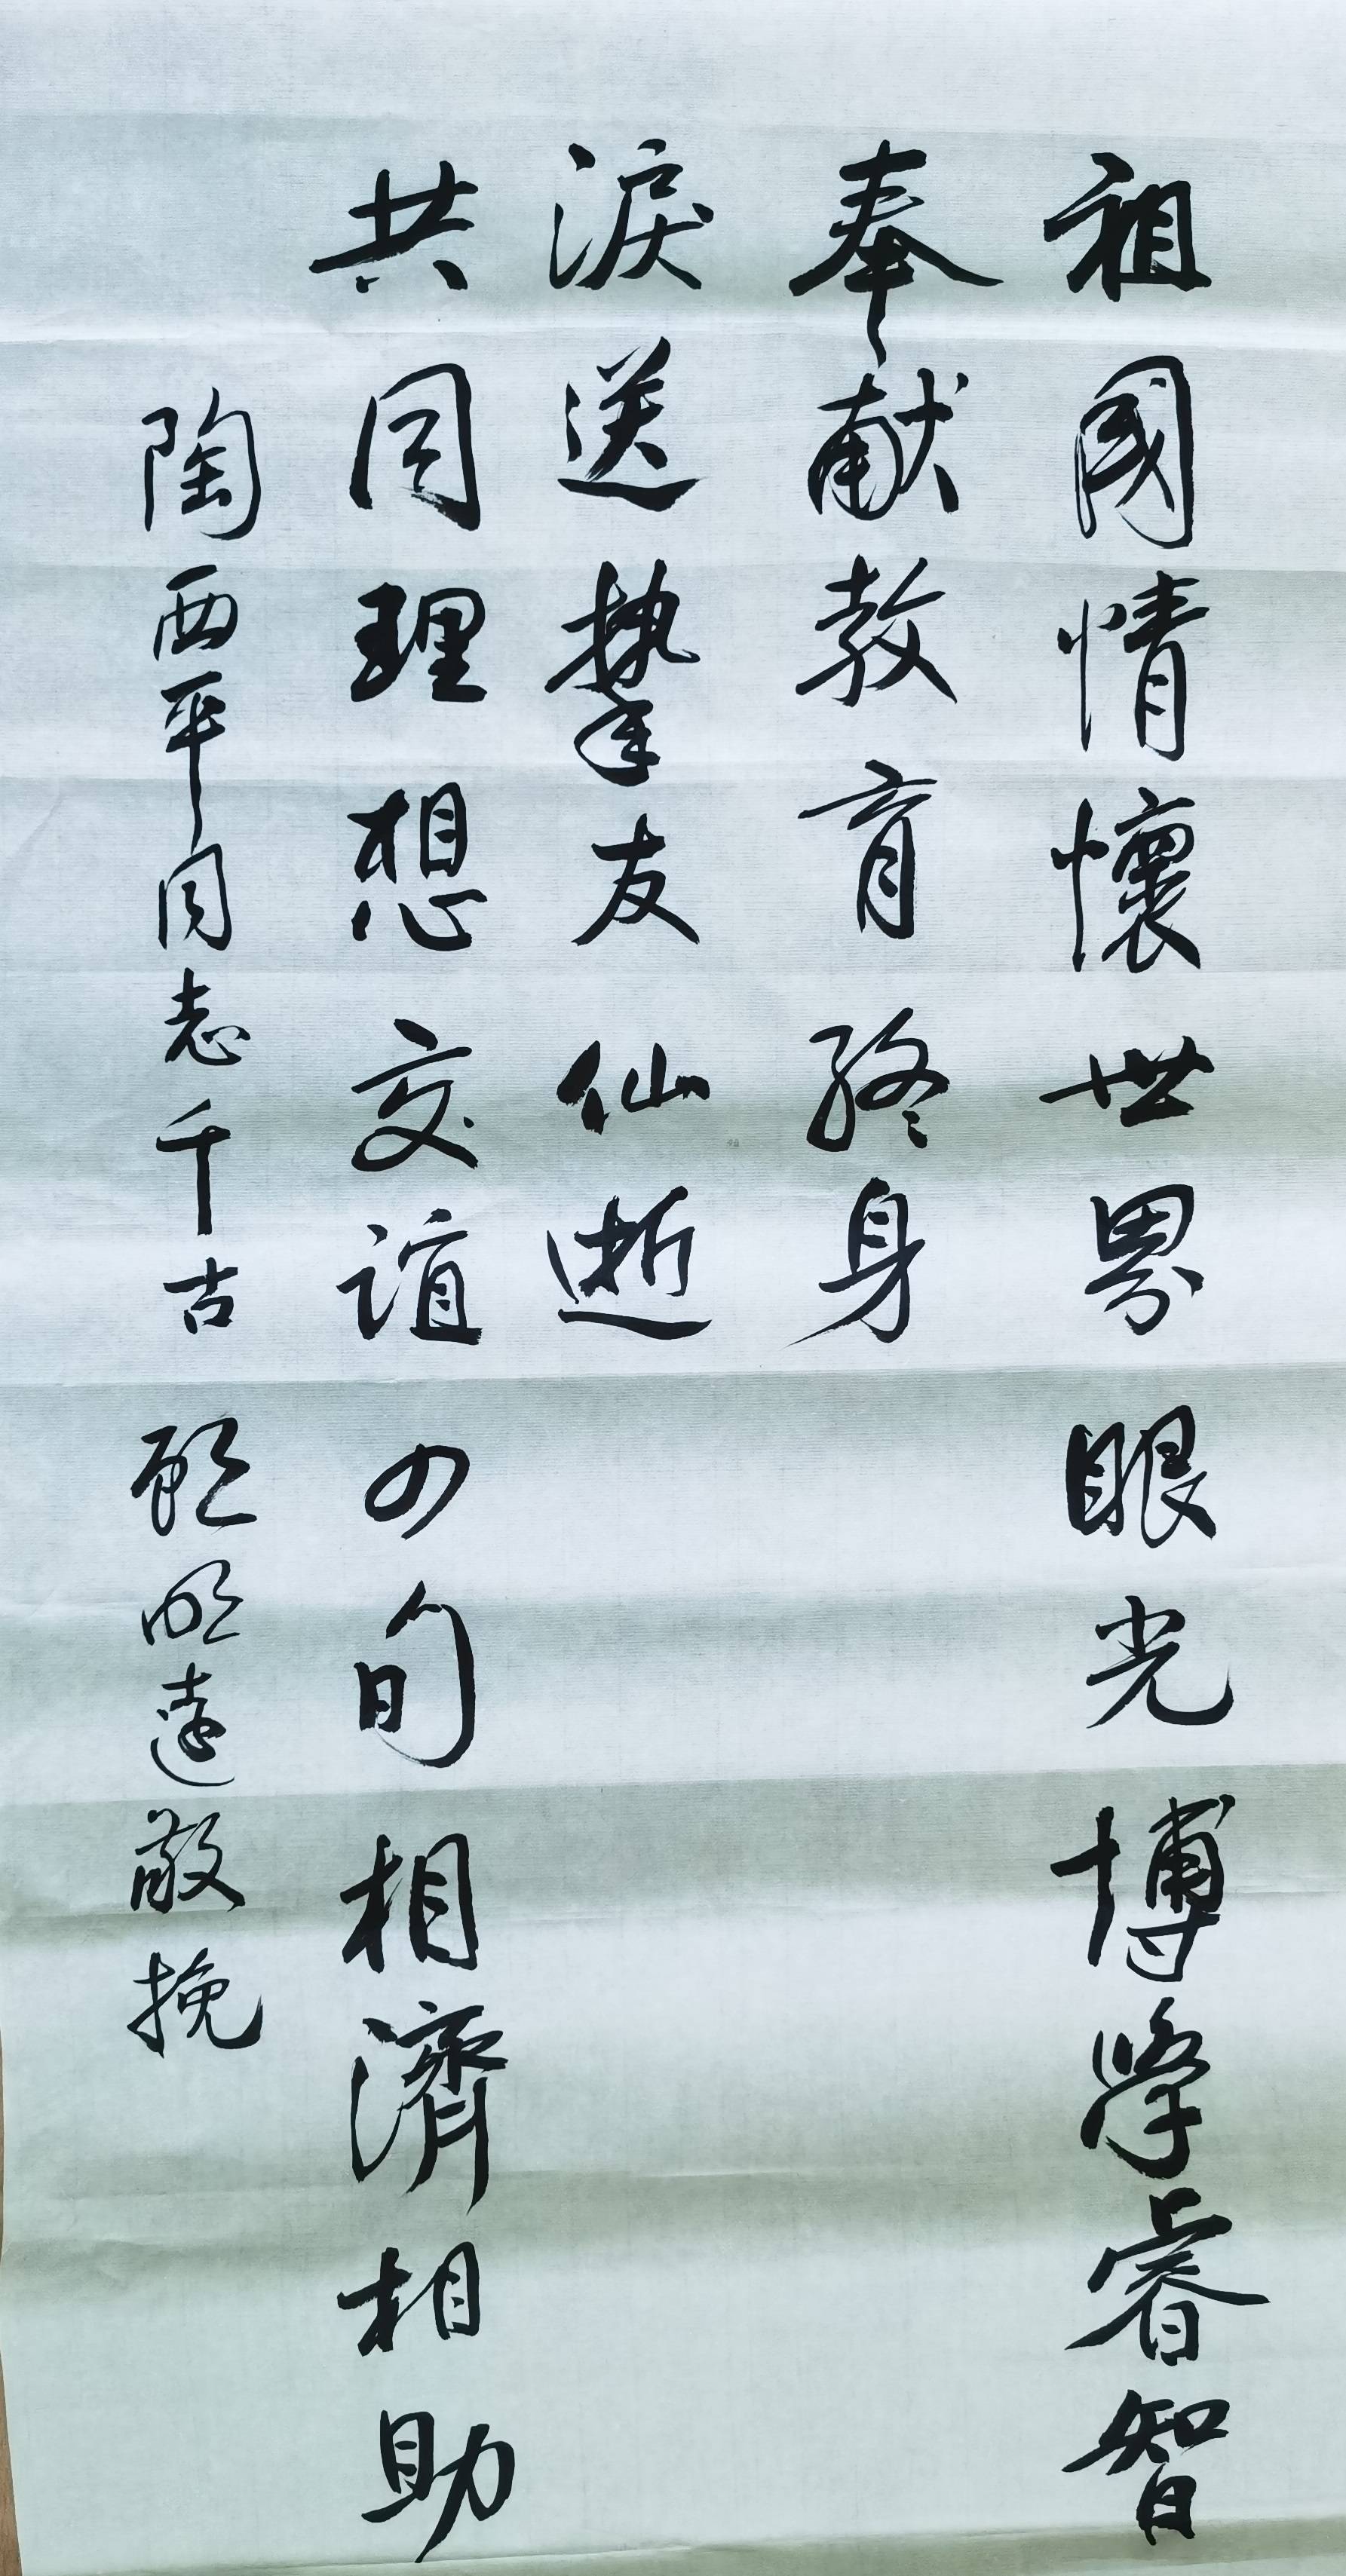 祖國情懷世界眼光博學睿智
奉献教育終身
共同理想交誼四旬相濟相助
淚送摯友仙逝
陶西平同志千古 顾明遠敬挽